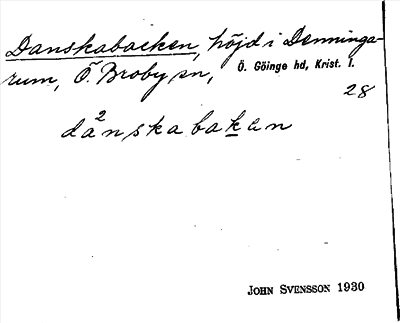 Danskabacken, höjd i Denninga-
rum, Ö. Broby sn, Ö. Göinge hd, Krist. l.
28
da²nskabakan
JOHN SVENSSON 1930